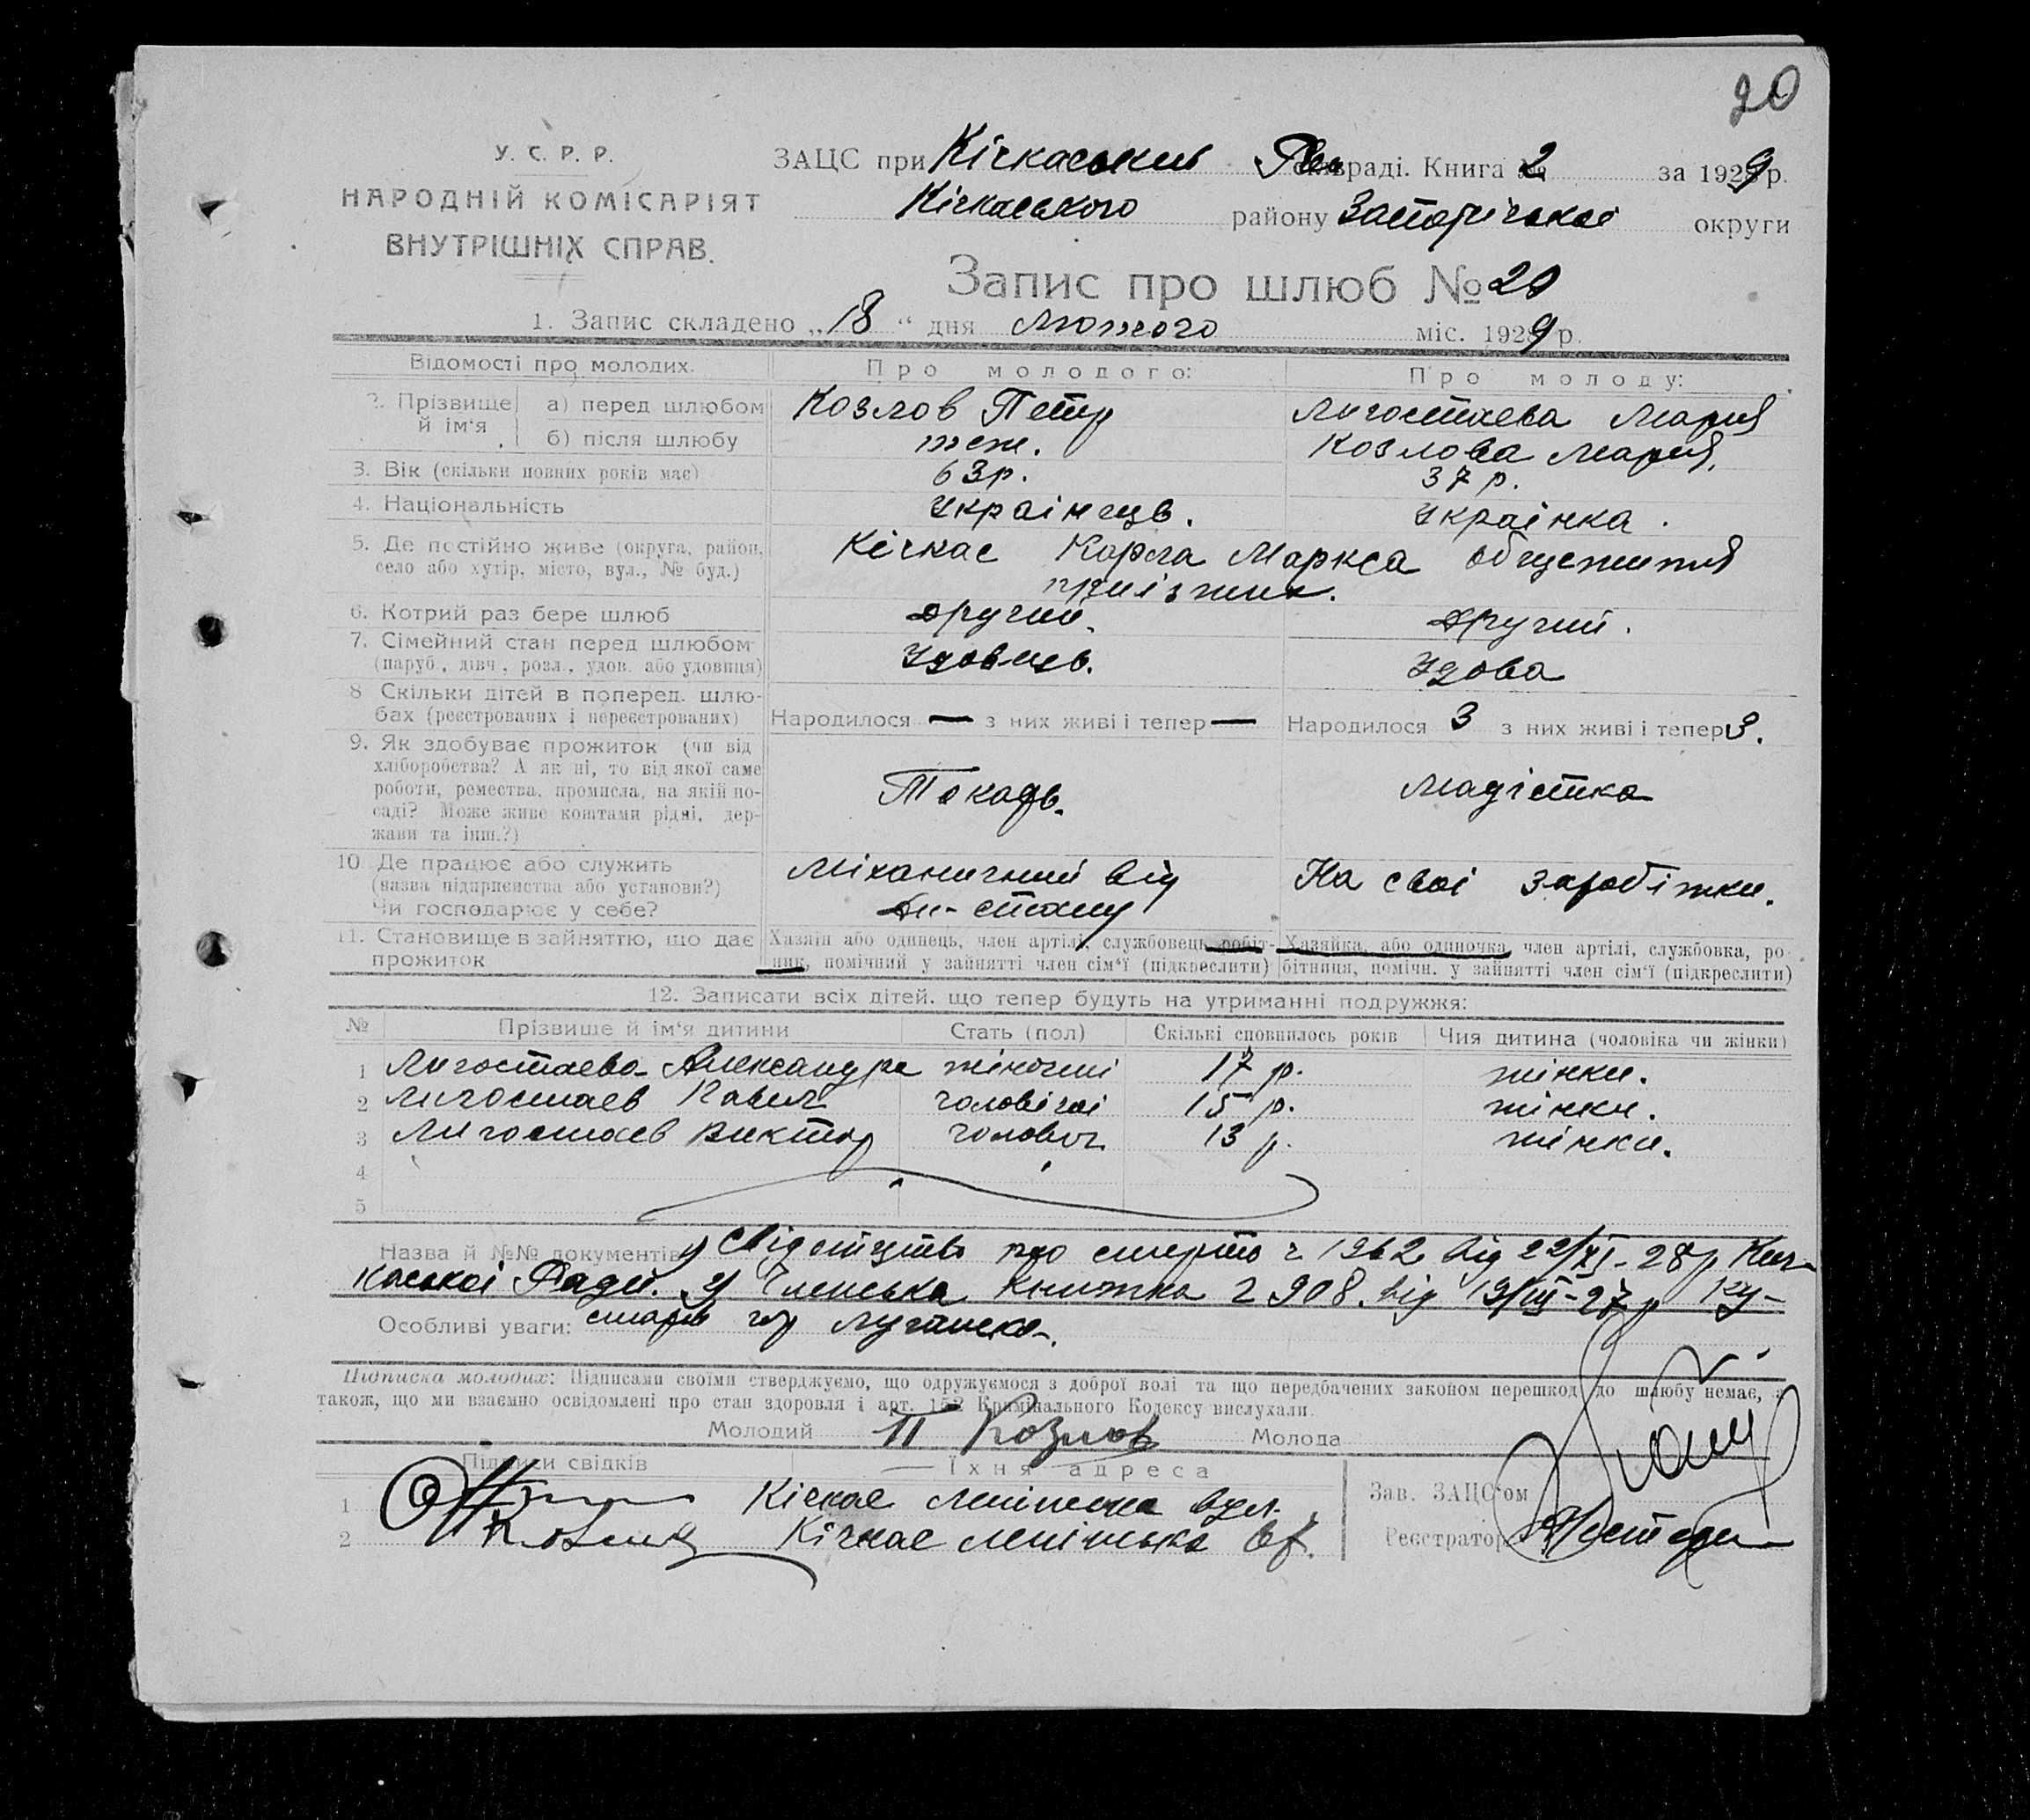 20
У. С. Р. Р.
НАРОДНІЙ КОМІСАРІЯТ
ВНУТРІШНІХ СПРАВ.
ЗАЦС при Кічкаським раді. Книга № 2 за 1929 р.
Кічкаського району Запорізької округи
Запис про шлюб № 20
1. Запис складено „18“ дня Лютого міс. 1929 р.
Відомості про молодих. Про молодого: Про молоду:
2. Прізвище й ім‘я а) перед шлюбом Козлов Петр Лигостаева Мария
б) після шлюбу теж. Козлова Мария.
3. Вік (скільки повних років має) 63 р. 37 р.
4. Національність Українець. Українка.
5. Де постійно живе (округа, район, Кічкас Карла Маркса общежитля
село або хутір, місто, вул., № буд.) приізжих.
6. Котрий раз бере шлюб другий. другий.
7. Сімейний стан перед шлюбом
(паруб., дівч., розл., удов. або удовиця) Удовець. Удова
8. Скільки дітей в поперед. шлю-
бах (реєстрованих і нереєстрованих) Народилося — з них живі і тепер — Народилося 3 з них живі і тепер 3.
9. Як здобуває прожиток (чи від
хліборобства? А як ні, то від якої саме
роботи, ремества, промисла, на якій по-
саді? Може живе коштами рідні, дер-
жави та інш.?) Токарь. Модістка
10. Де працює або служить Міханичний від На своі заробіжки.
(назва підприємства або установи?)
Чи господарює у себе?
11. Становище в зайняттю, що дає прожиток
Хазяїн або одинець, член артілі, службовець, робіт-
ник, помічний у зайнятті член сім‘ї (підкреслити)
Хазяйка, або одиночка, член артілі, службовка, ро-
бітниця, помічн. у зайнятті член сім‘ї (підкреслити)
12. Записати всіх дітей, що тепер будуть на утриманні подружжя:
№ Прізвише й ім‘я дитини Стать (пол) Скількі сповнилось років Чия дитина (чоловіка чи жінки)
1 Лигостаева Александра жіночиі 17 р. жінки.
2 Лигостаев Павил чоловічиі 15 р. жінки.
3 Лигостаев Виктор чоловіч 13 р. жінки.
4
5
Назва й №№ документів 1) Свідотцтво про смерть 1962 від 22/XI-28 р Кич-
каськоі Ради. 2) Членська Книжка 2908 від 19/III-27 р Ку-
Особливі уваги: старів гор Луганска.
Підписка молодих: Підписами своїми стверджуємо, що одружуємося з доброї волі та що передбачених законом перешкод до шлюбу немає, а
також, що ми взаємно освідомлені про стан здоровля і арт. 152 Кримінального Кодексу вислухали.
Молодий П Козлов Молода
Підписи свідків Їхня адреса
1 Кічкас Ленінська вул. Зав. ЗАЦС‘ом
2 Кічкас Ленінська Реєстратор